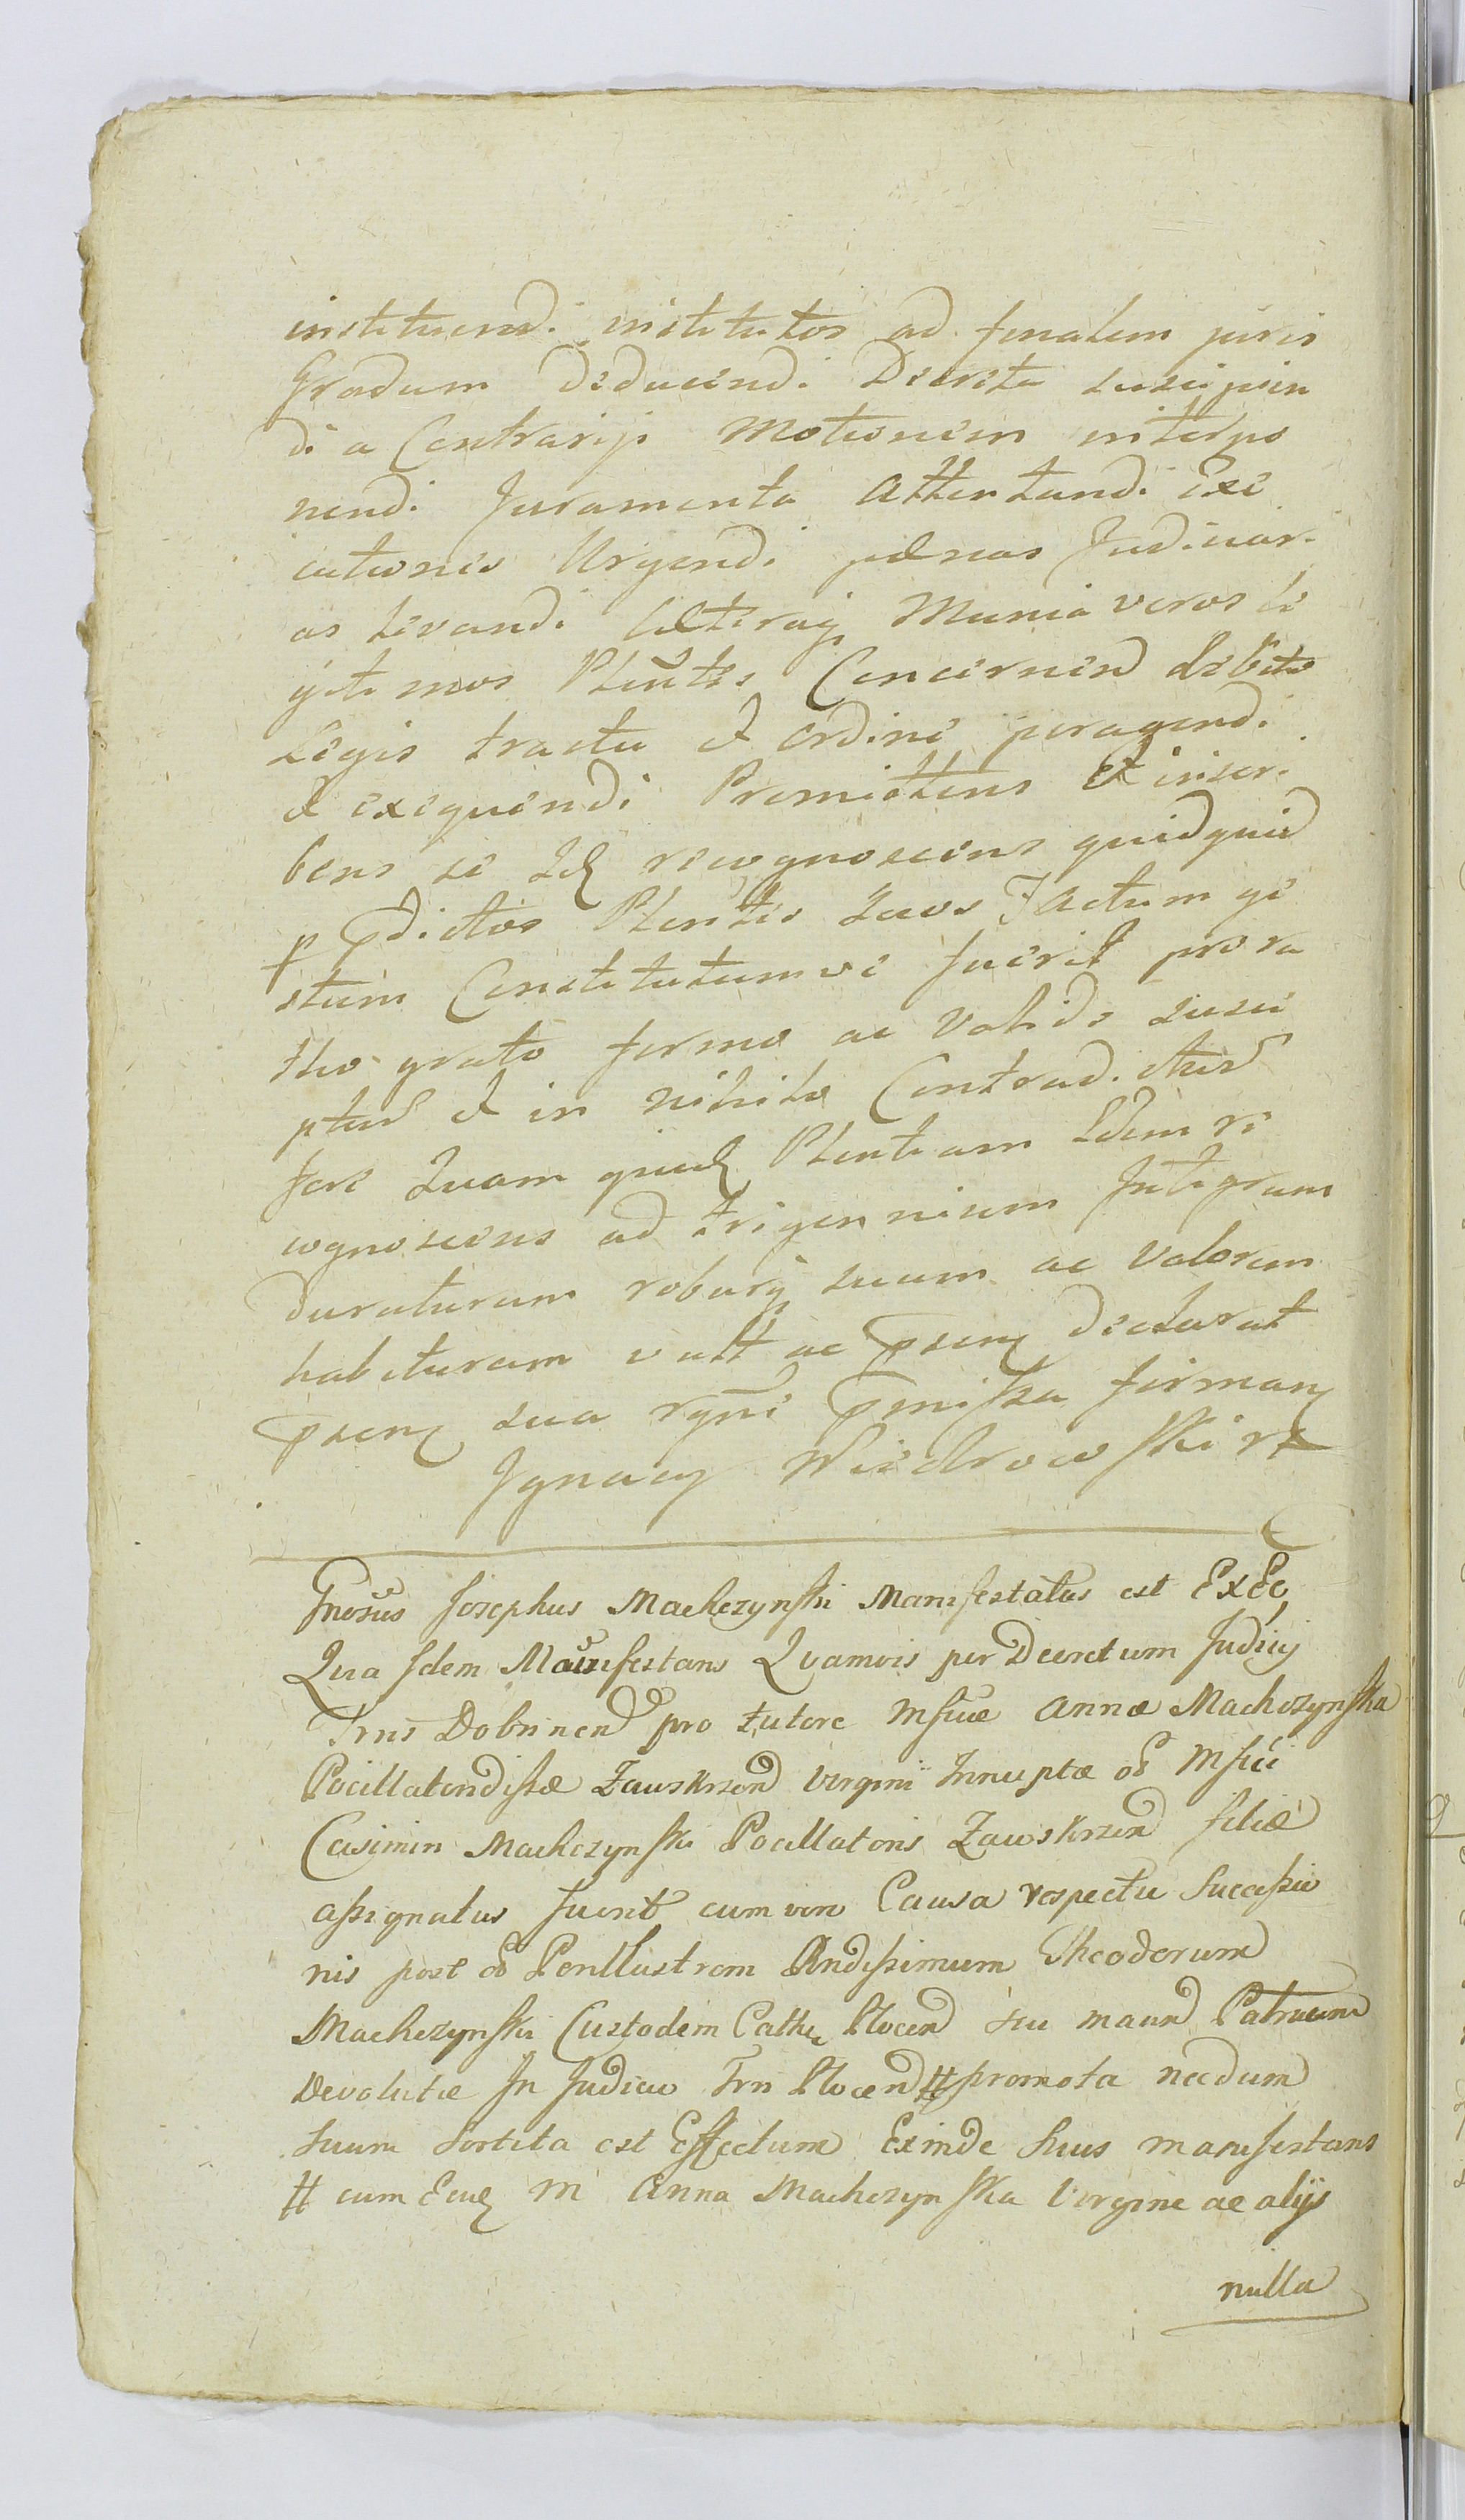 instituendi institutos ad finalem juris
Gradum deducendi Decreta suscipien
di a Contrarijs Motionem interpo
nendi Juramenta Attentandi Exe
cutionis Urgendi pænas Judiciari
as Levandi Cæteraq Munia veros le
gitimos Plentēs Concernen debito
Legis tractu et ordine peragendi
et exequendi Promittens et inscri
bens se Idq recognoscens quidquid
p pdictos Plentēs suos Factum ge
stum Constitutumve fuerit pro ra
tho grato firmo ac Valido susce
ptur et in nihilo Contradictur
fore Quam quidē Plentiam Idem re
cognoscens ad trigennium Integrum
duraturam roburq suum ac Valorem
habituram vult ac psenq declarat
psenq sua rgni pmissa firmanq
Ignacy Wiedrowski
Gnosus Josephus Machczynski Manifestatus est Ex Eo
Quia Idem Manifestans Quamvis per Decretum Judicij
Trris Dobrinen pro tutore Mficæ Annæ Machczynska
Pocillatoridissæ Zawskrzen Virgini Innuptæ od Mfici
Casimiri Machczynski Pocillatoris Zawskrzen filiæ
assignatus fuerit cum vero Causa respectu Successio
nis post od Perillustrem Rndissimum Theodorum
Machczynski Custodem Cathē Plocen suu maun Patruum
Devolutæ In Judicio Trri Plocen # promota necdum
suum Sortita est Effectum Exinde huius manifestans
# cum Eadē M Anna Machczynska Virgine ac alijs
nulla